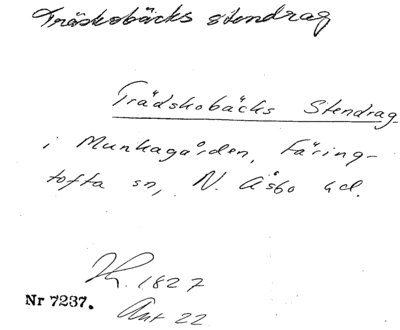 Träskobäcks stendrag
Trädskobäcks Stendrag
i Munkagården, Färing-
tofta sn, N. Åsbo hd.
K. 1827
Nr 7237.
Akt 22